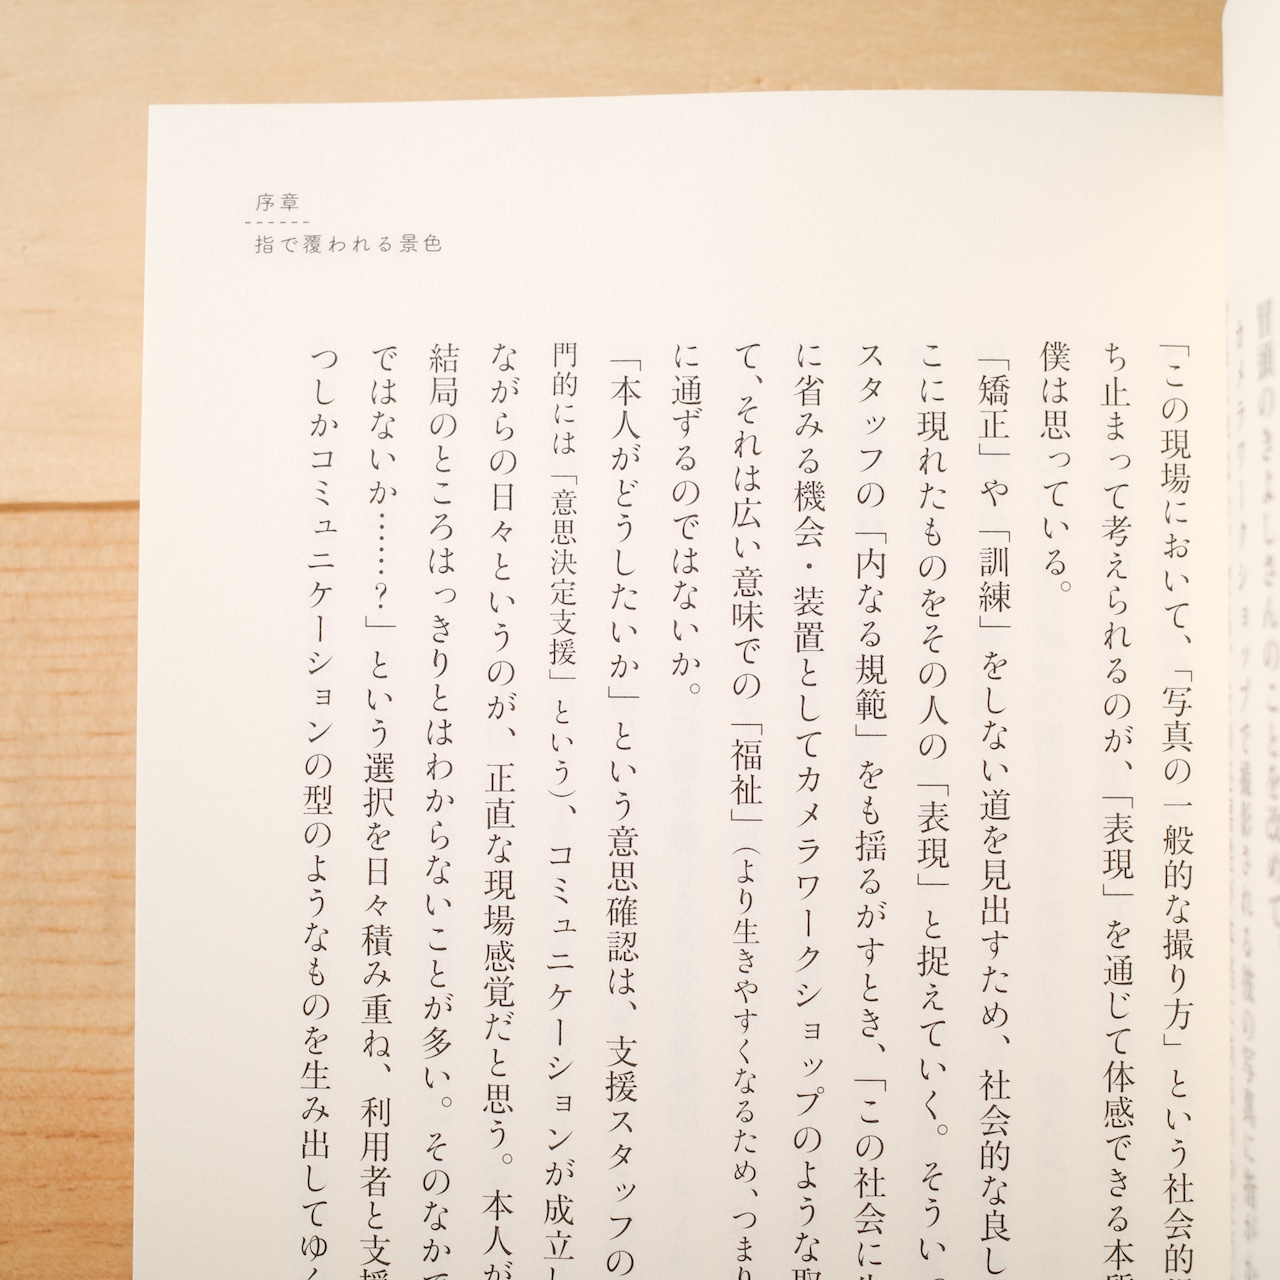 序章
指で覆われる景色
「この現場において、「写真の一般的な撮り方」という社会的
ち止まって考えられるのが、「表現」を通じて体感できる本
僕は思っている。
「矯正」や「訓練」をしない道を見出すため、社会的な良し
こに現れたものをその人の「表現」と捉えていく。そうい
スタッフの「内なる規範」をも揺るがすとき、「この社会に
に省みる機会・装置としてカメラワークショップのような取
て、それは広い意味での「福祉」（より生きやすくなるため、つまり
に通ずるのではないか。
「本人がどうしたいか」という意思確認は、支援スタッフの
門的には「意思決定支援」という）、コミュニケーションが成立し
ながらの日々というのが、正直な現場感覚だと思う。本人が
結局のところはっきりとはわからないことが多い。そのなかで
ではないか……？」という選択を日々積み重ね、利用者と支援
つしかコミュニケーションの型のようなものを生み出してゆく